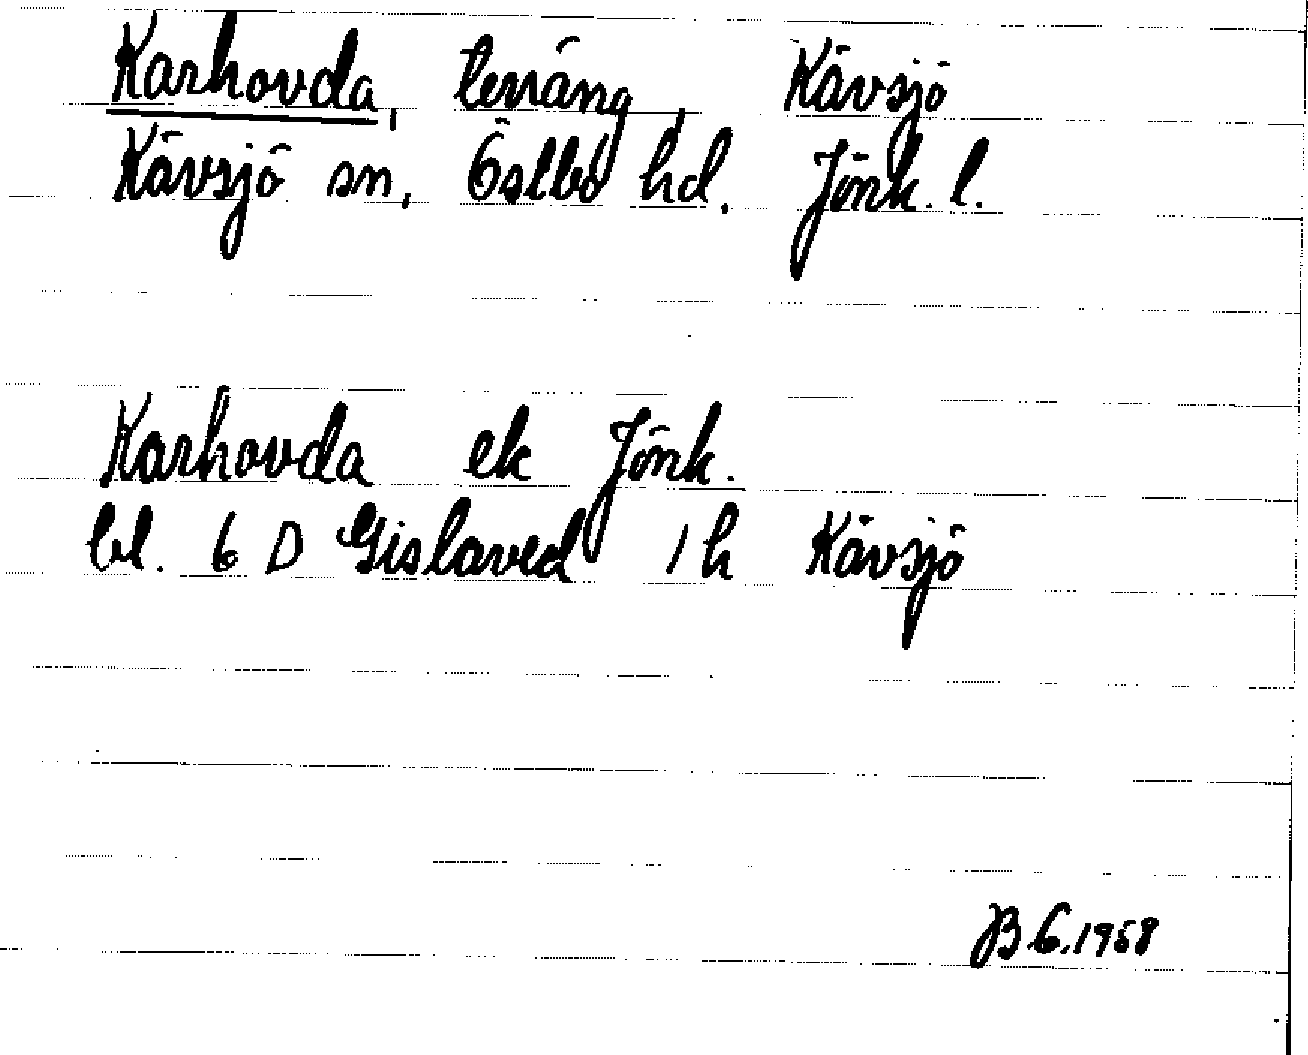 Karhovda, terräng, Kävsjö
Kävsjö sn, Östbo hd. Jönk. l.
Karhovda ek Jönk.
bl. 6 D Gislaved 1 h Kävsjö
B G. 1958